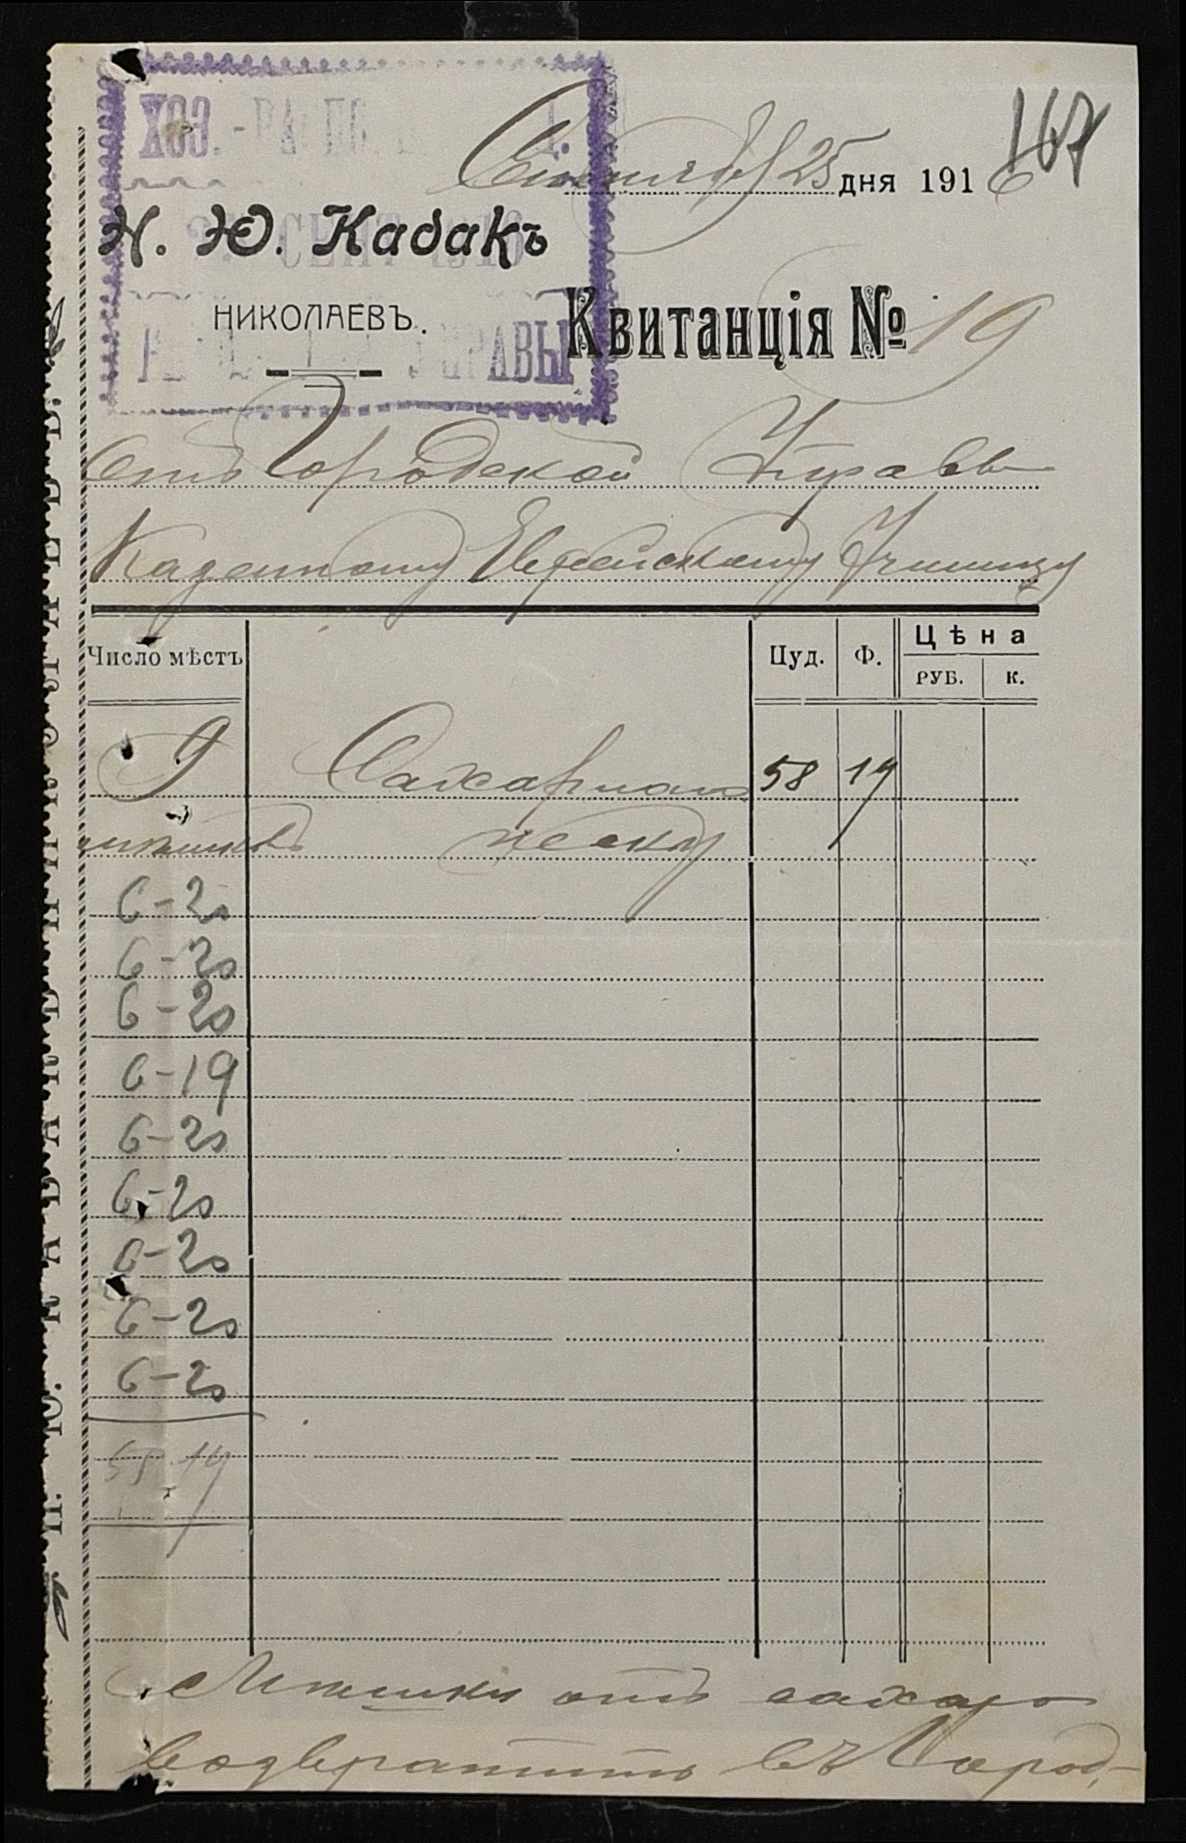 167
Сентября 25 дня 1916
ХОЗ.-РАСПО
СЕНТ 1916
УПРАВЫ
Н. Ю. Кабакъ
НИКОЛАЕВЪ.
Квитанція № 19
отъ Городской Управы
Казенному Еврейскому Училищу
Число мѣстъ Пуд. Ф. Цѣна
РУБ. К.
9 Сахарнаго 58 19
мѣшковъ песку
6-20
6-20
6-20
6-19
6-20
6-20
6-20
6-20
6-20
58 19
Мѣшки отъ сахара
возвратить въ Город.